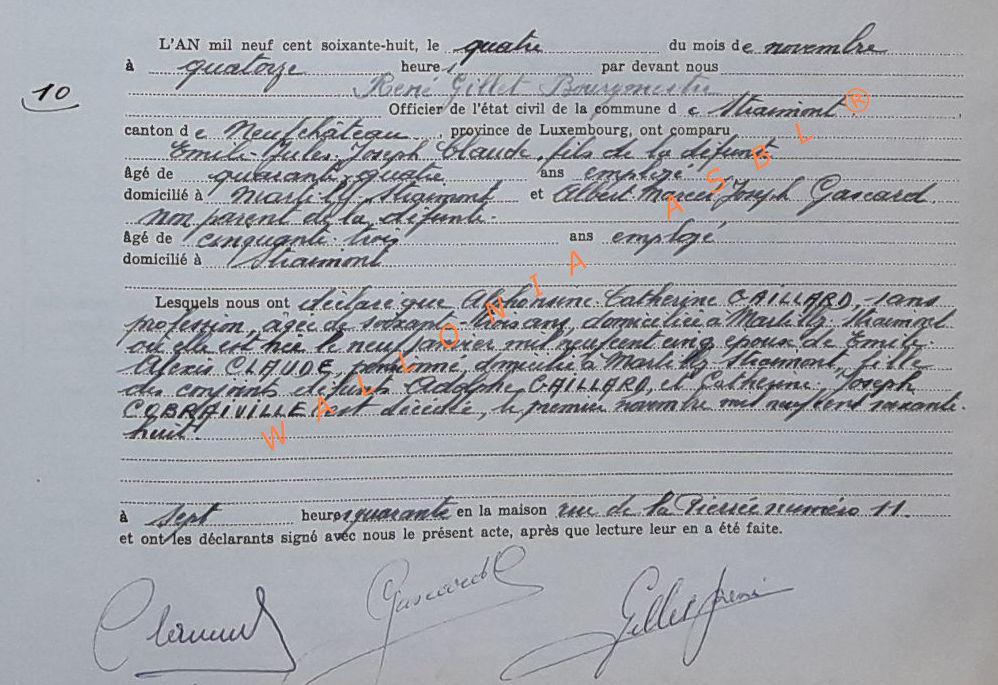 L'AN mil neuf cent soixante-huit, le quatre du mois de novembre
à quatorze heures par devant nous
10
René Gillet Bourgmestre
Officier de l'état civil de la commune de Straimont ®
canton de Neufchâteau, province de Luxembourg, ont comparu
Emile-Jules-Joseph Claude, fils de la défunte
Agé de quarante-quatre ans employé
domicilié à Martilly-Straimont et Albert Marcel Joseph Gascard
non parent de la défunte.
Agé de cinquante-trois ans employé
domicilié à Straimont
Lesquels nous ont déclaré que Alphonsine-Catherine CAILLARD, sans
profession, âgée de soixante-trois ans, domiciliée à Martilly-Straimont
où elle est née le neuf janvier mil neuf cent cinq épouse de Emile-
Alexis CLAUDE, pensionné, domicilié à Martilly-Straimont, fille
des conjoints défunts Adolphe CAILLARD, et Catherine, Joseph
COBRAIVILLE est décédée, le premier novembre mil neuf cent soixante-
huit.
à sept heures quarante en la maison rue de la numéro 11.
et ont les déclarants signé avec nous le présent acte, après que lecture leur en a été faite.
WALLONIA ASBL
Gascard Gillet René